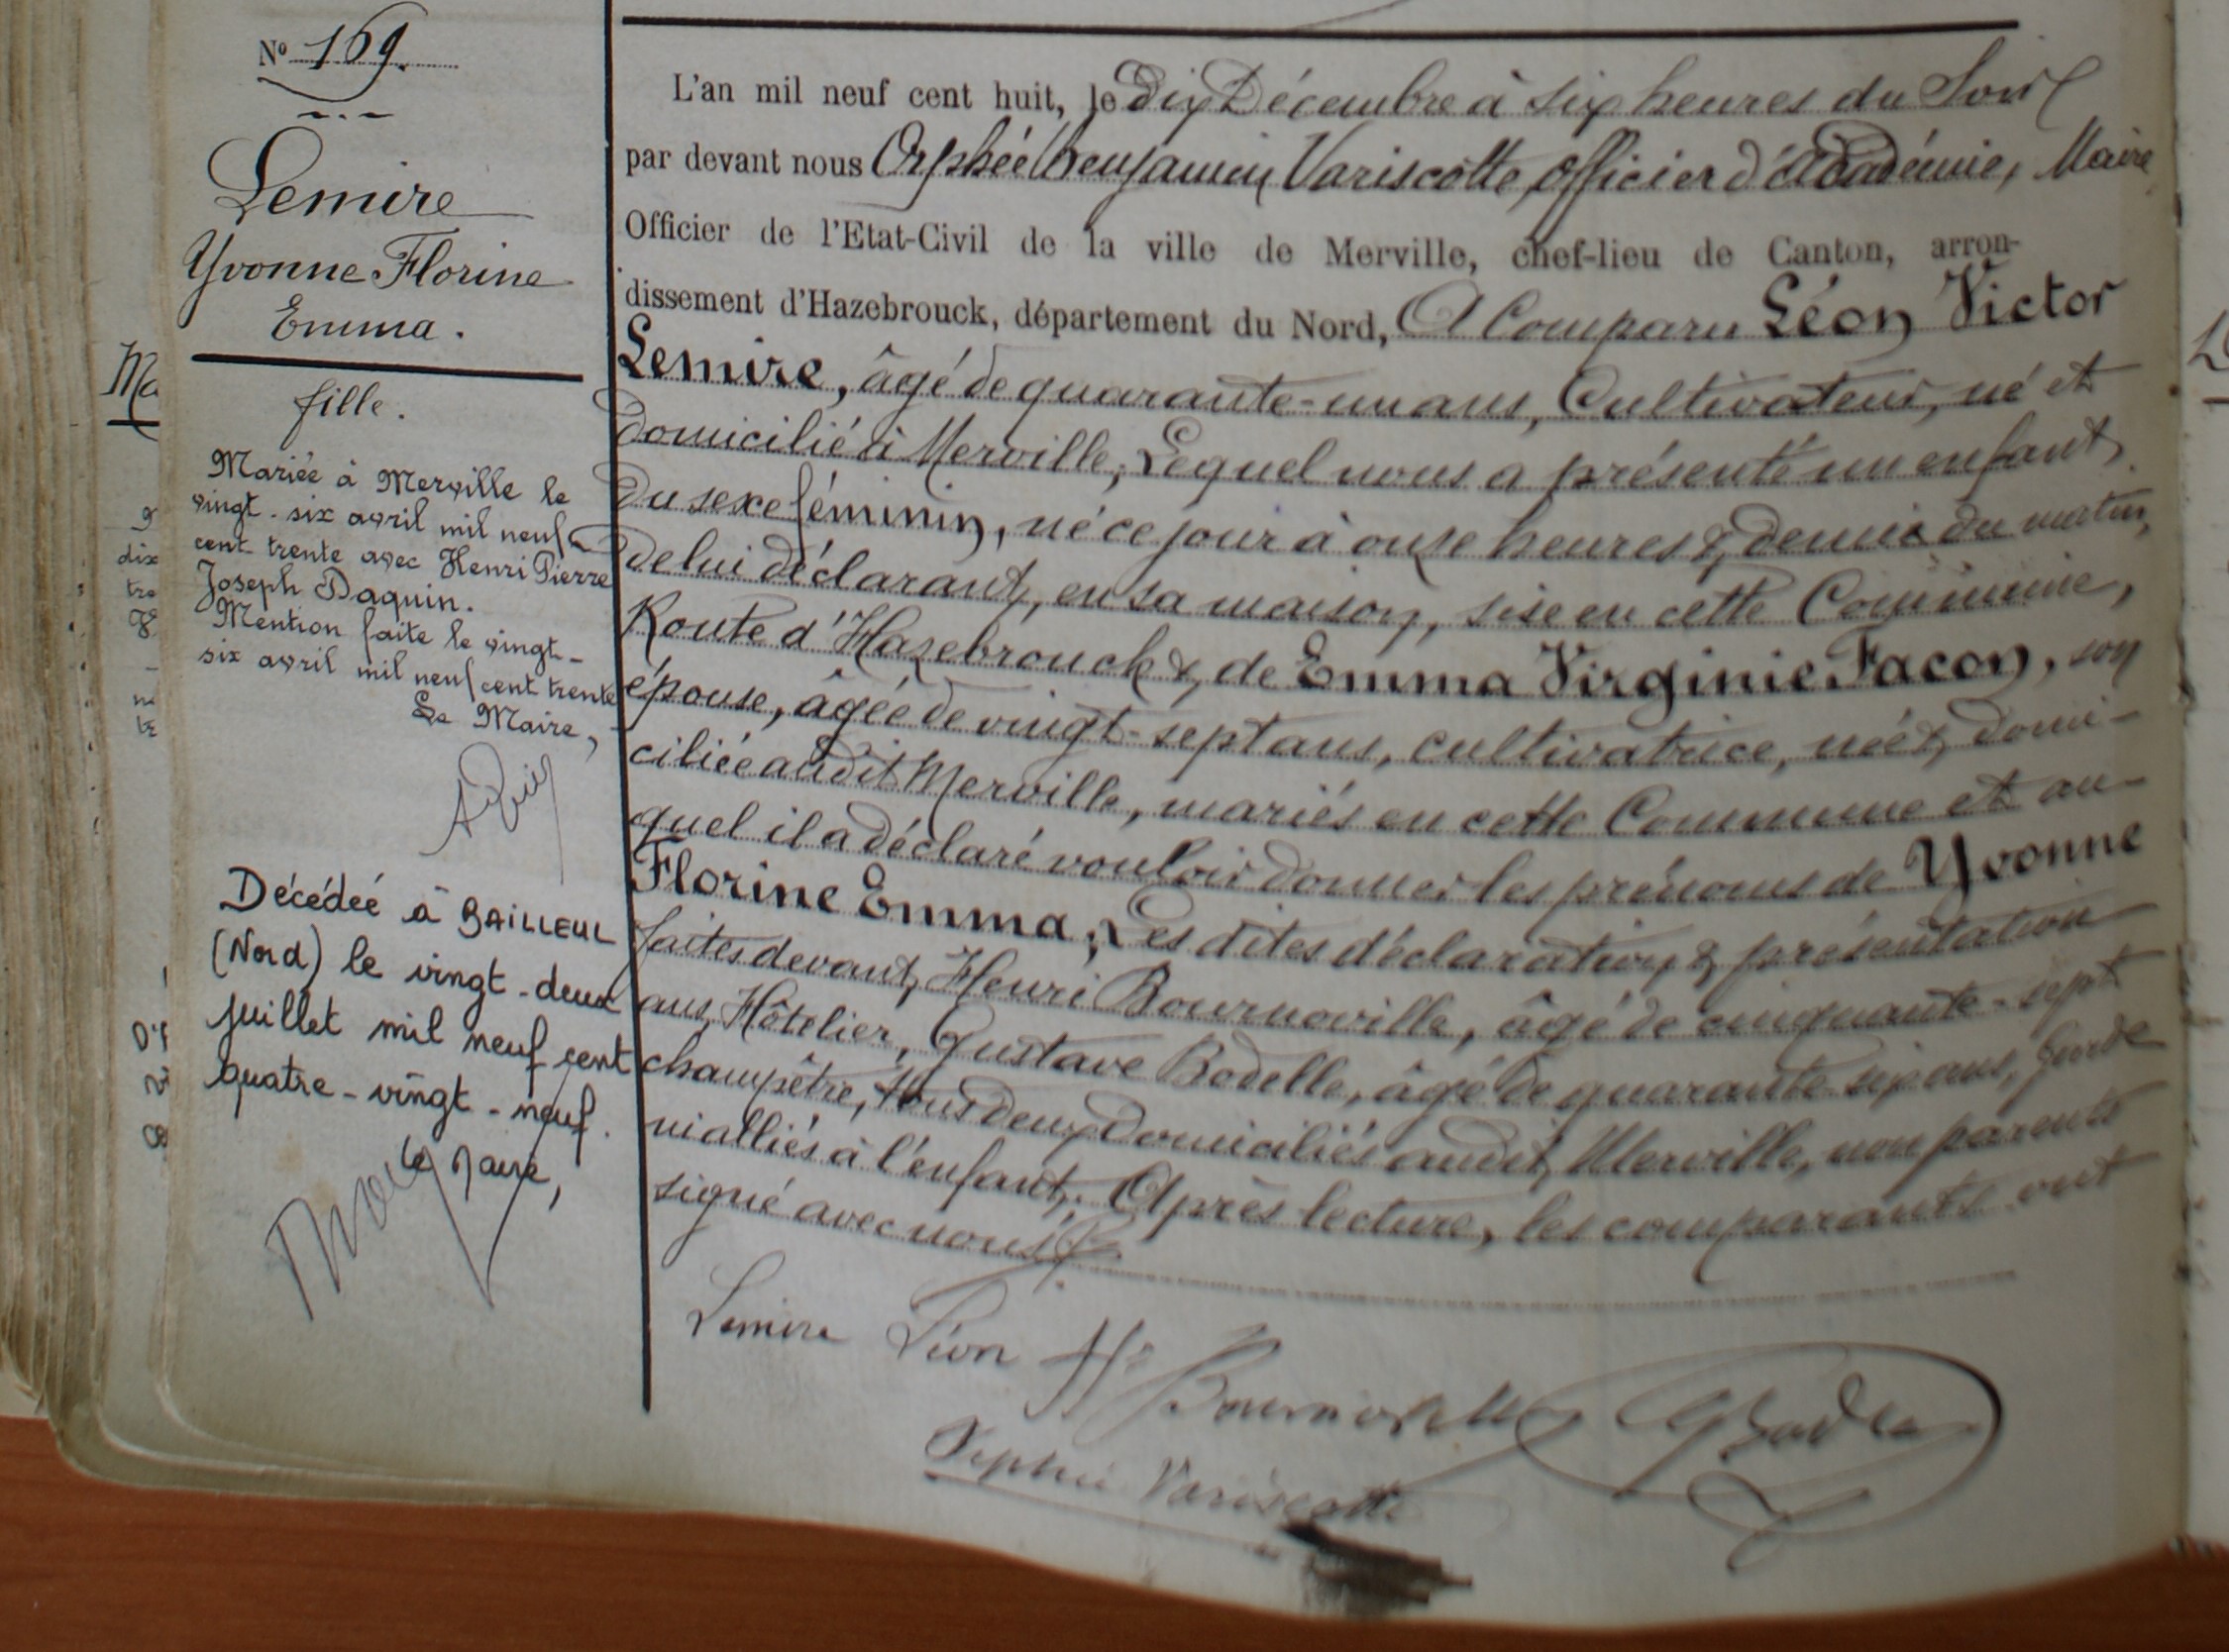 N° 169.
Lemire
Yvonne Florine
Emma.
fille.
Mariée à Merville le
vingt-six avril mil neuf
cent trente avec Henri Pierre
Joseph Daquin.
Mention faite le vingt-
six avril mil neuf cent trente
Le Maire,
Décédée à BAILLEUL
(Nord) le vingt-deux
juillet mil neuf cent
quatre-vingt-neuf.
le Maire,
L'an mil neuf cent huit, le dix Décembre à six heures du Soir
par devant nous Orphée Benjamin Variscotte, officier d'académie, Maire
Officier de l'Etat-Civil de la ville de Merville, chef-lieu de Canton, arron-
dissement d'Hazebrouck, département du Nord, A Comparu Léon Victor
Lemire, âgé de quarante-un ans, Cultivateur, né et
domicilié à Merville, Lequel nous a présenté un enfant
du sexe féminin, né ce jour à onze heures & demie du matin,
de lui déclarant, en sa maison, sise en cette Commune,
Route d'Hazebrouck & de Emma Virginie Facon, son
épouse, âgée de vingt-sept ans, cultivatrice, née & domi-
ciliée audit Merville, mariés en cette Commune et au-
quel il a déclaré vouloir donner les prénoms de Yvonne
Florine Emma; Les dites déclaration & présentation
faites devant Henri Bournoville, âgé de cinquante-sept
ans, Hôtelier, Gustave Bodelle, âgé de quarante-six ans, garde
champêtre, tous deux domiciliés audit Merville, non parents
ni alliés à l'enfant. Après lecture, les comparants ont
signé avec nous
Lemire Léon Hi Bournoville GBodelle
Orphée Variscotte